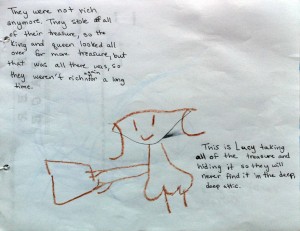 They were not rich
anymore. They stole all
of their treasure, so the
king and queen looked all
over for more treasure, but
that was all there was, so
they weren't rich again for a long
time.
This is Lucy taking
all of the treasure and
hiding it so they will
never find it in the deep,
deep attic.